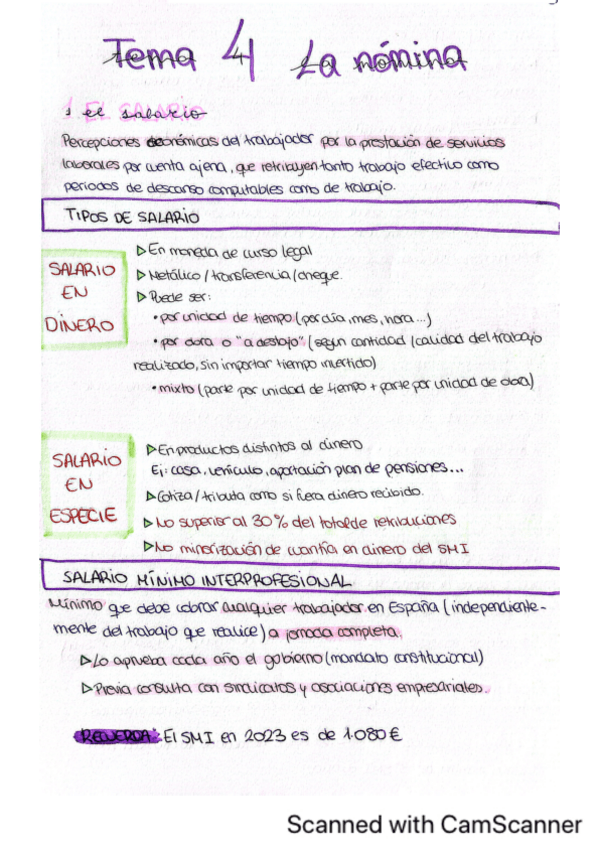 Tema 4 La nómina
1 el salario
Percepciones económicas del trabajador por la prestación de servicios
laborales por cuenta ajena, que retribuyen tanto trabajo efectivo como
periodos de descanso computables como de trabajo.
TIPOS DE SALARIO
SALARIO
EN
DINERO
▷ En moneda de curso legal
▷ Metálico / transferencia / cheque.
▷ Puede ser:
• por unidad de tiempo (por día, mes, hora...)
• por obra o "a destajo" (según cantidad / calidad del trabajo
realizado, sin importar tiempo invertido)
• mixto (parte por unidad de tiempo + parte por unidad de obra)
SALARIO
EN
ESPECIE
▷ En productos distintos al dinero
Ej: casa, vehículo, aportación plan de pensiones...
▷ Cotiza / tributa como si fuera dinero recibido.
▷ No superior al 30% del total de retribuciones
▷ No minorización de cuantía en dinero del SMI
SALARIO MÍNIMO INTERPROFESIONAL
Mínimo que debe cobrar cualquier trabajador en España (independiente-
mente del trabajo que realice) a jornada completa.
▷ Lo aprueba cada año el gobierno (mandato constitucional)
▷ Previa consulta con sindicatos y asociaciones empresariales.
RECUERDA: El SMI en 2023 es de 1.080€
Scanned with CamScanner